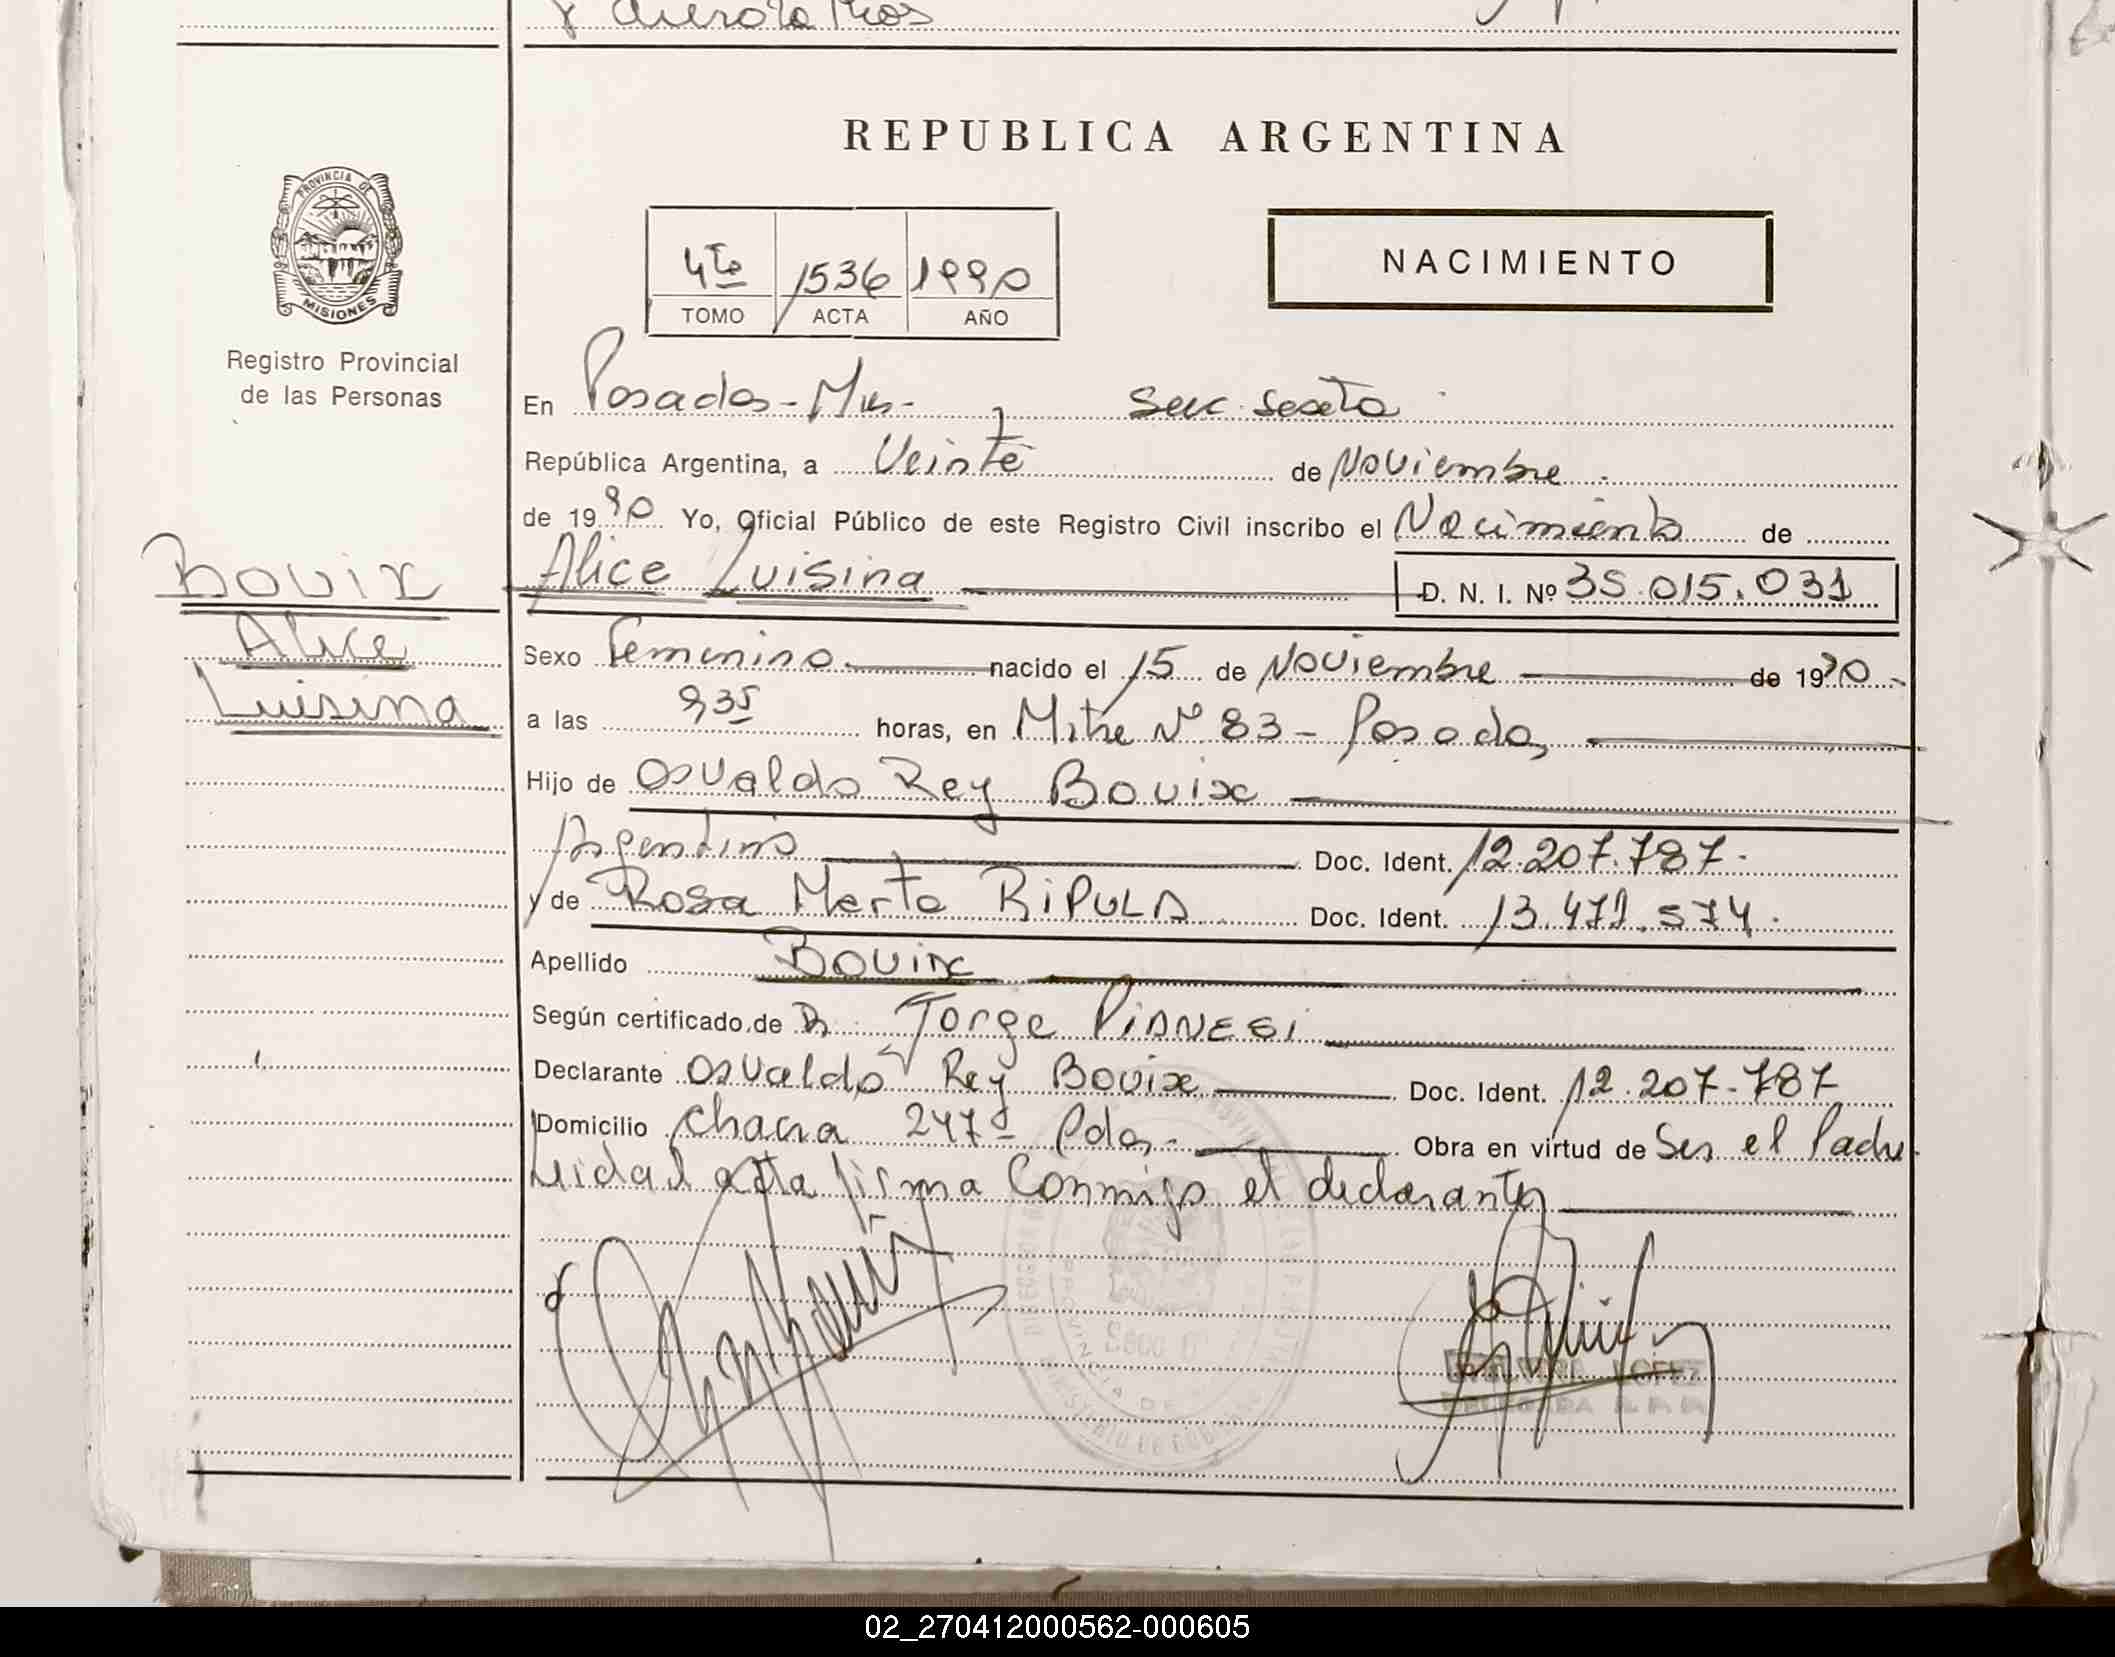 REPUBLICA ARGENTINA
PROVINCIA DE
MISIONES
Registro Provincial
de las Personas
4to 1536 1990
TOMO ACTA AÑO
NACIMIENTO
En Posadas - Mnes - Secc. Sexta
República Argentina, a Veinte de Noviembre
de 1990 Yo, Oficial Público de este Registro Civil inscribo el Nacimiento de
Bouix Alice Luisina D. N. I. Nº 35.015.031
Alice
Luisina
Sexo Femenino nacido el 15 de Noviembre de 1990
a las 9 35 horas, en Mitre Nº 83 - Posadas
Hijo de Osvaldo Rey Bouix
Argentino Doc. Ident. 12.207.787.
y de Rosa Merta RIPULA Doc. Ident. 13.471.574.
Apellido Bouix
Según certificado de Dr. Jorge PIANESI
Declarante Osvaldo Rey Bouix Doc. Ident. 12.207.787
Domicilio Chacra 247 - Pdas - Obra en virtud de Ser el Padre
Leida el acta firma Conmigo el declarante
LOPEZ
02_270412000562-000605